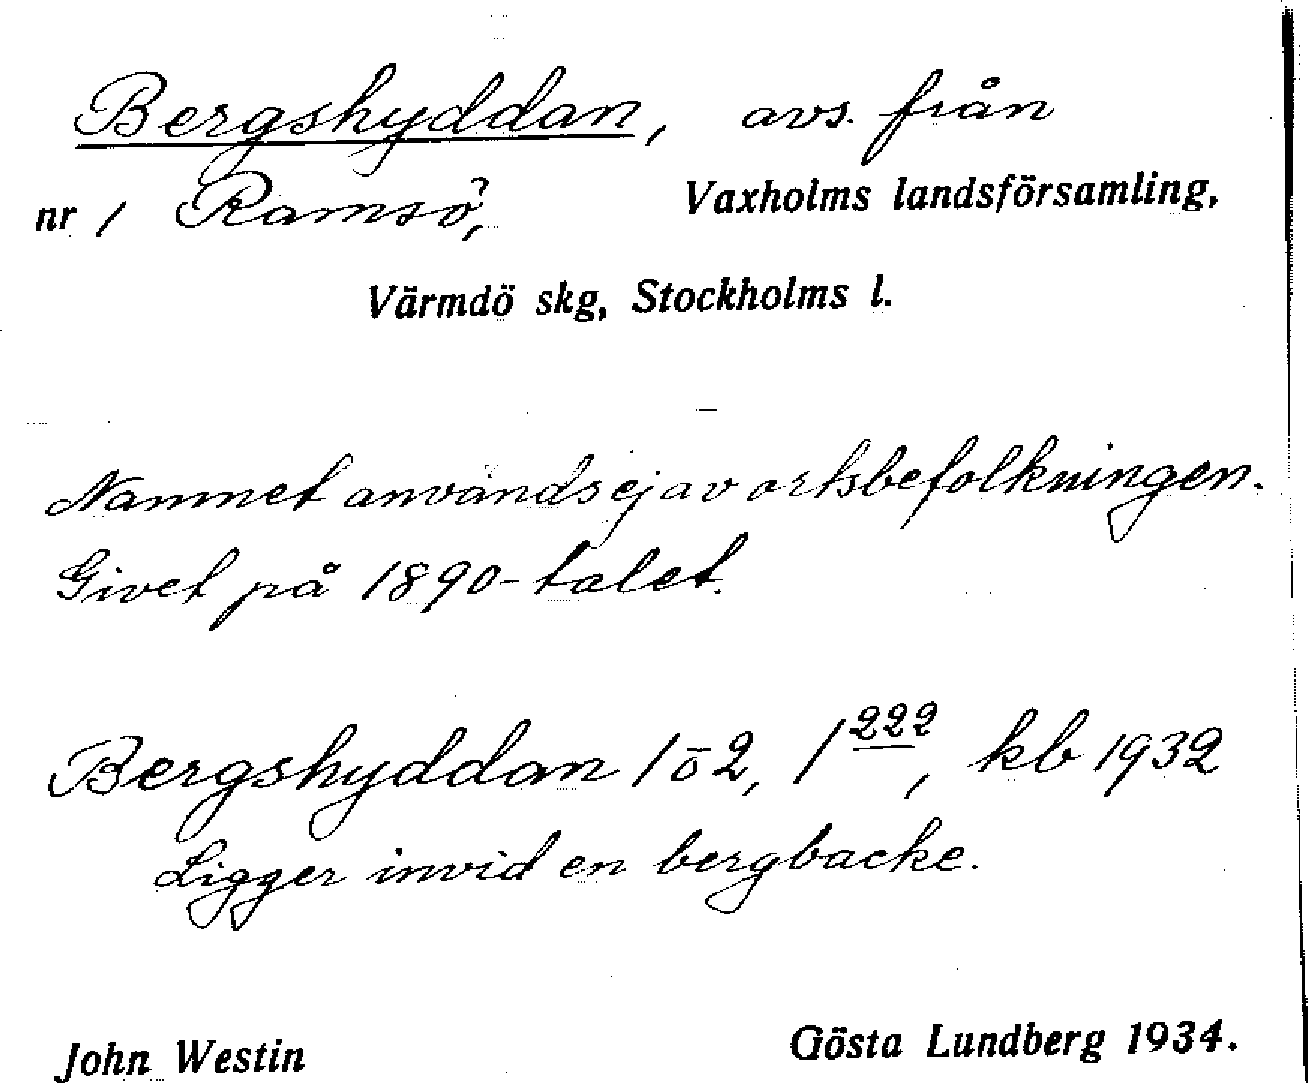 Bergshyddan, avs. från
nr 1 Ramsö, Vaxholms landsförsamling,
Värmdö skg, Stockholms l.
Namnet användsejav ortsbefolkningen.
Givet på 1890-talet.
Bergshyddan 1 o 2, 1 222, kb 1932
Ligger invid en bergbacke.
John Westin Gösta Lundberg 1934.